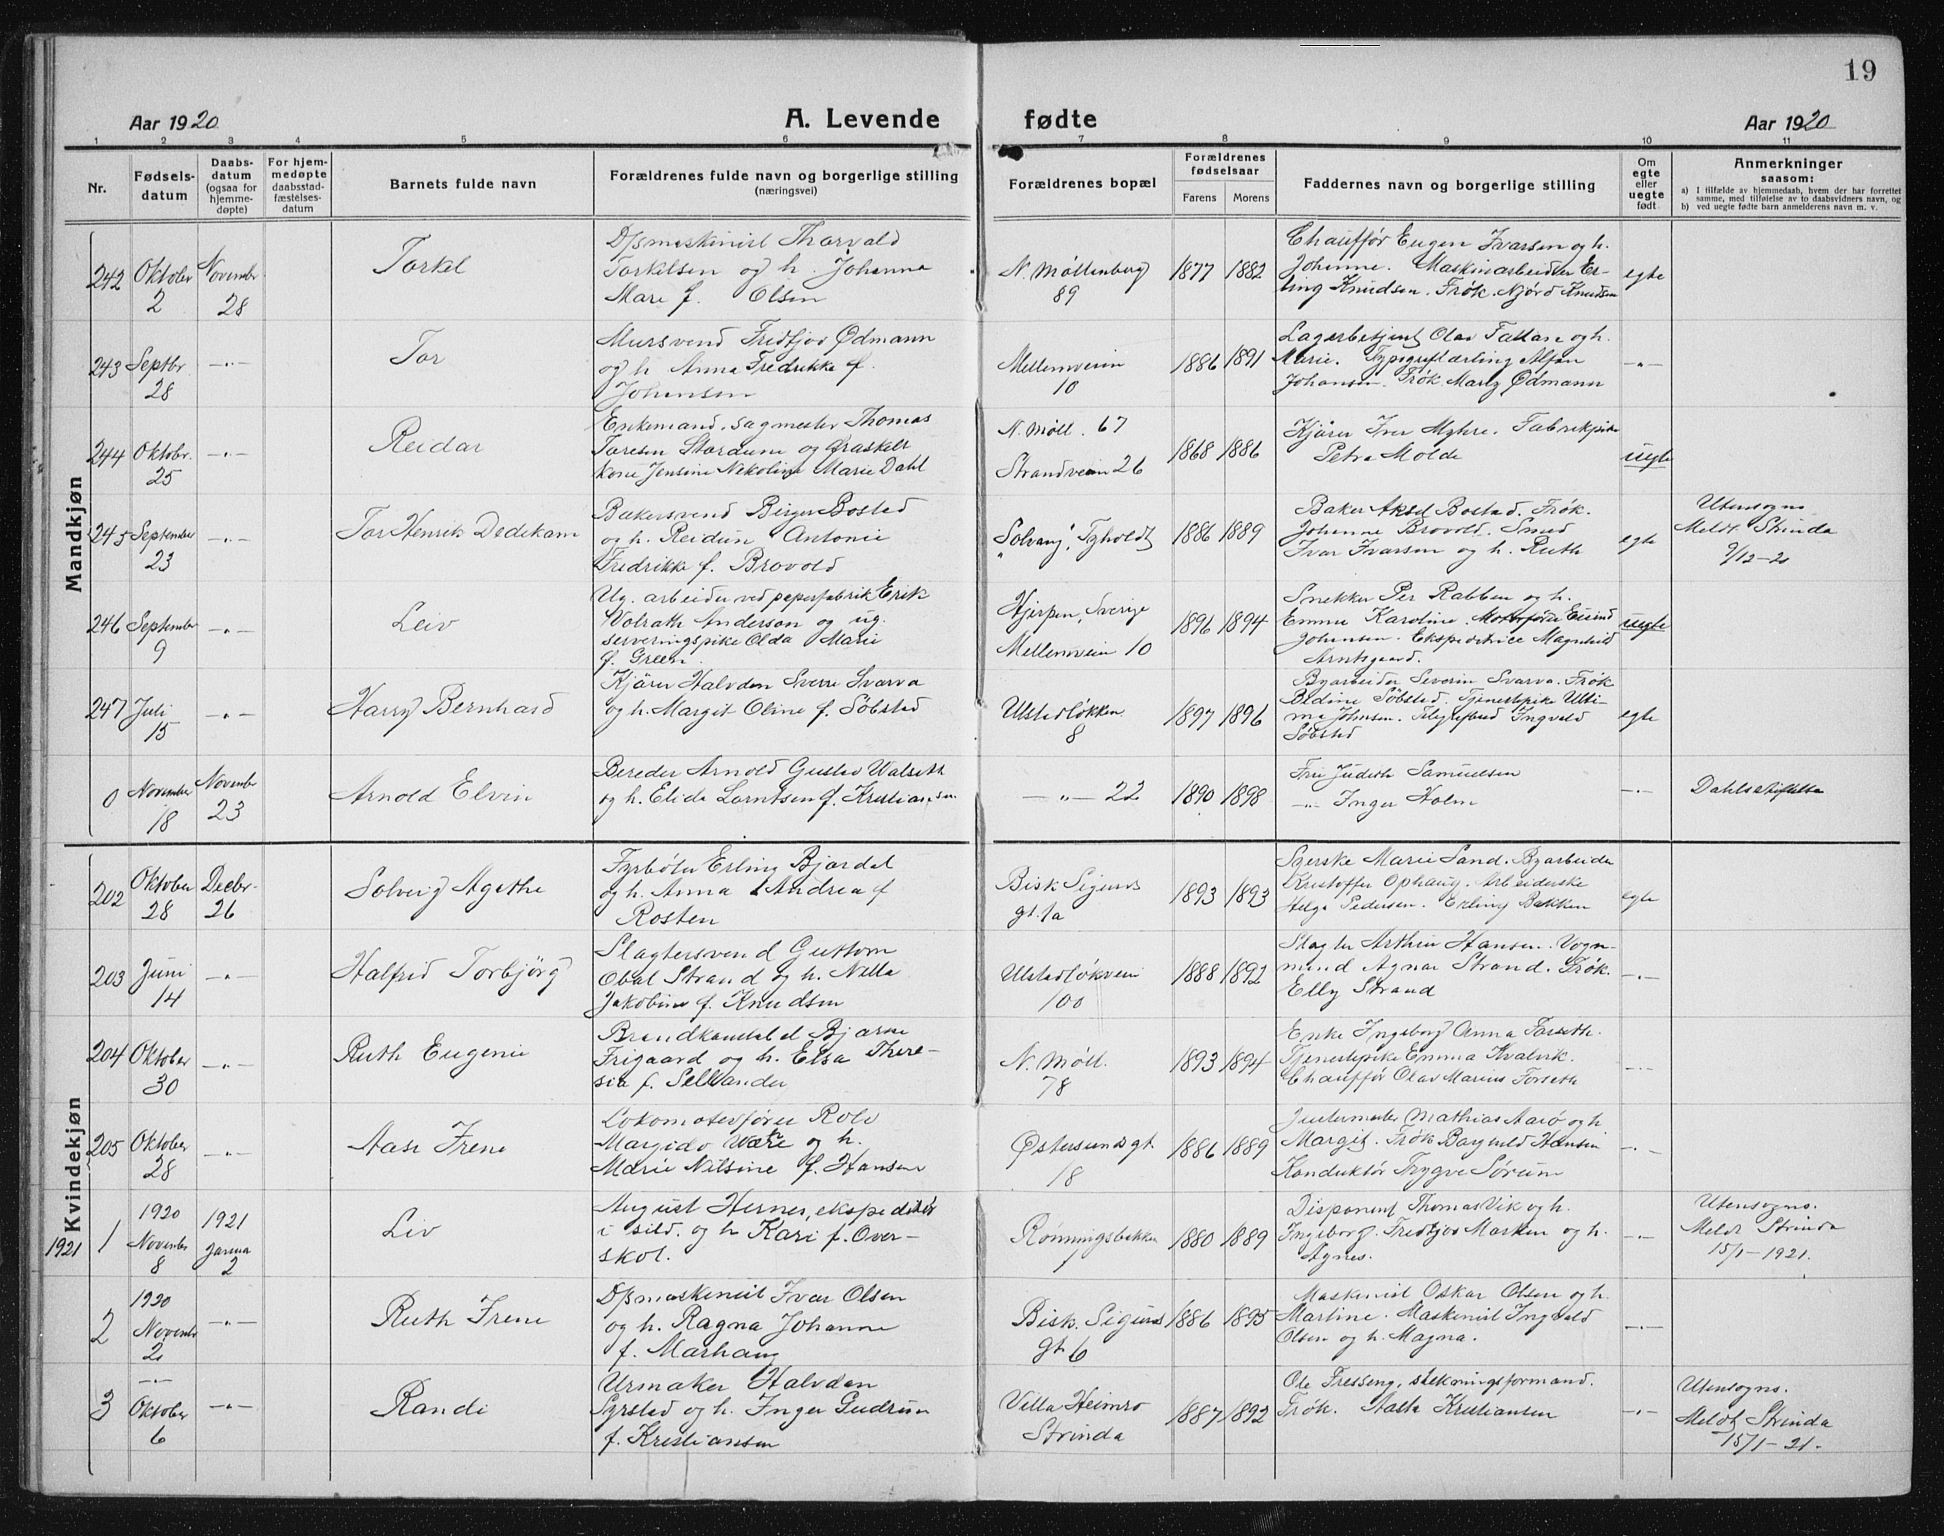 19
Aar 1920
A. Levende fødte
Aar 1920
1 2 3 4 5 6 7 8 9 10 11
Nr.
Fødsels-
datum
Daabs-
datum
(ogsaa for
hjemme-
døpte)
For hjem-
medøpte
daabsstad-
fæstelses-
datum
Barnets fulde navn
Forældrenes fulde navn og borgerlige stilling
(næringsvei)
Forældrenes bopæl
Forældrenes
fødselsaar
Farens Morens
Faddernes navn og borgerlige stilling
Om
egte
eller
uegte
født
Anmerkninger
saasom:
a) I tilfælde av hjemmedaab, hvem der har forrettet
samme, med tilføielse av to daabsvidners navn, og
b) ved uegte fødte barn anmelderens navn m. v.
Mandkjøn
242 Oktober 2
November 28
Torkel
D/smaskinist Thorvald
Torkilsen og h. Johanna
Marc f. Olsen
N. Møllenberg
89
1877 1882
Chauffør Eugen Ivarsen og h.
Johanne. Maskinarbeider Er-
ling Knudsen. Frøk. Njørd Knudsen
egte
243 Septbr 28
-"-
Tor
Mursvend Fridtjov Ødmann
og h. Anna Fredrikke f.
Johansen
Mellemveien
10
1886 1891
Lagerbetjent Olav Fallan og h.
Marie. Typograflærling Alfon
Johansen. Frøk. Marly Ødmann
-"-
244 Oktobr. 25
-"-
Reidar
Enkemand, sagmester Thomas
Toresen Stordum og fraskilt
kone Jensine Nekoline Marie Dahl
N. Møll. 67
Strandveien 26
1868 1886
Kjører Iver Myhre. Fabrikpike
Petra Molde
uegte
245 September 23
-"-
Tor Henrik Dedekam
Bakersvend Birger Bostad
og h. Reidun Antonie
Fredrikke f. Brovold
"Solvang", Tyholdt
1886 1889
Baker Aksel Bostad. Frøk.
Johanne Brovold. Smed
Ivar Ivarsen og h. Ruth
egte
Utensogns
Meldt Strinda
9/12-20
246 September 9
-"-
Leiv
Ug. arbeider ved papirfabrik Erik
Volrath Anderson og ug.
serveringspike Olda Marie
f. Green.
Hjerpen, Sverige
Mellemveien 10
1896 1894
Snekker Per Rabben og h.
Emma Karoline. Motorfører Eivind
Johansen. Ekspeditrice Magnhild
Arntsgaard.
uegte
247 Juli 15
-"-
Harry Bernhard
Kjører Halvdan Sverre Svarva
og h. Margit Oline f. Søbstad
Ulstadløkken
8
1897 1896
Byarbeider Severin Svarva. Frøk
Beldine Søbstad. Tjenestpike Ulti-
ma Johnsen. Telegrafbud Ingvald
Søbstad
egte
0 November 18
November 23
Arnold Elvin
Bereder Arnold Gustav Walseth
og h. Elida Lorntsen f. Kristiansen
-"- 22
1890 1898
Fru Judith Samuelsen
-"- Inger Holm
-"-
Dahls stiftelse
Kvindekjøn
202 Oktober 28
Decbr. 26
Solveig Agathe
Fyrbøter Erling Bjørdal
og h. Anna Andrea f
Rosten
Bisk Sigurds
gt. 1a
1893 1893
Syerske Marie Sand. Byarbeider
Kristoffer Ophaug. Arbeiderske
Helga Pedersen. Erling Bakken
egte
203 Juni 14
-"-
Halfrid Torbjørg
Slagtersvend Guttorm
Obal Strand og h. Nilla
Jakobine f. Knudsen
Ulstadløkvein
100
1888 1892
Slagter Arthur Hansen. Vogn-
mand Agnar Strand. Frøk.
Elly Strand
-"-
204 Oktober 30
-"-
Ruth Eugenie
Brandkonstabel Bjarne
Frigaard og h. Elsa There-
sia f. Sellander
N. Møll.
78
1893 1894
Enke Ingeborg Anna Forseth.
Tjenestepike Emma Kvalvik.
Chauffør Olav Marius Forseth
-"-
205 Oktober 28
-"-
Aase Irene
Lokomotivfører Rolv
Margido Være og h.
Marie Nilsine f. Hansen
Østersundsgt.
18
1886 1889
Mathias Aarø og h
Margit. Frøk Borghild Hansen
Konduktør Trygve Sørum
-"-
1921
1 1920 November 8
1921 Januar 2
Liv
August Hernes, ekspeditør
i sild. og h Kari f. Over-
skol.
Rønningsbakken
1
1880 1889
Disponent Thomas Vik og h.
Ingeborg. Fredtjov Marken og h.
Agnes.
-"-
Utensogns.
Meldt Strinda
15/1-1921.
2 1920 Novembr 2
-"-
Ruth Irene
D/smaskinist Ivar Olsen
og h. Ragna Johanne
f. Marhaug
Bisk. Sigurds
gt. 6
1886 1895
Maskinist Oskar Olsen og h.
Martine. Maskinist Ingvald
Olsen og h. Magna.
-"-
3 -"- Oktober 6
-"-
Randi
Urmaker Halvdan
Syrstad og h. Inger Gudrun
f. Kristiansen
Villa Heimro
Strinda
1887 1892
Ole Fresseng, stekningsformand.
Frøk. Aasta Kristiansen
-"-
Utensogns.
Meldt Strinda
15/1-21.